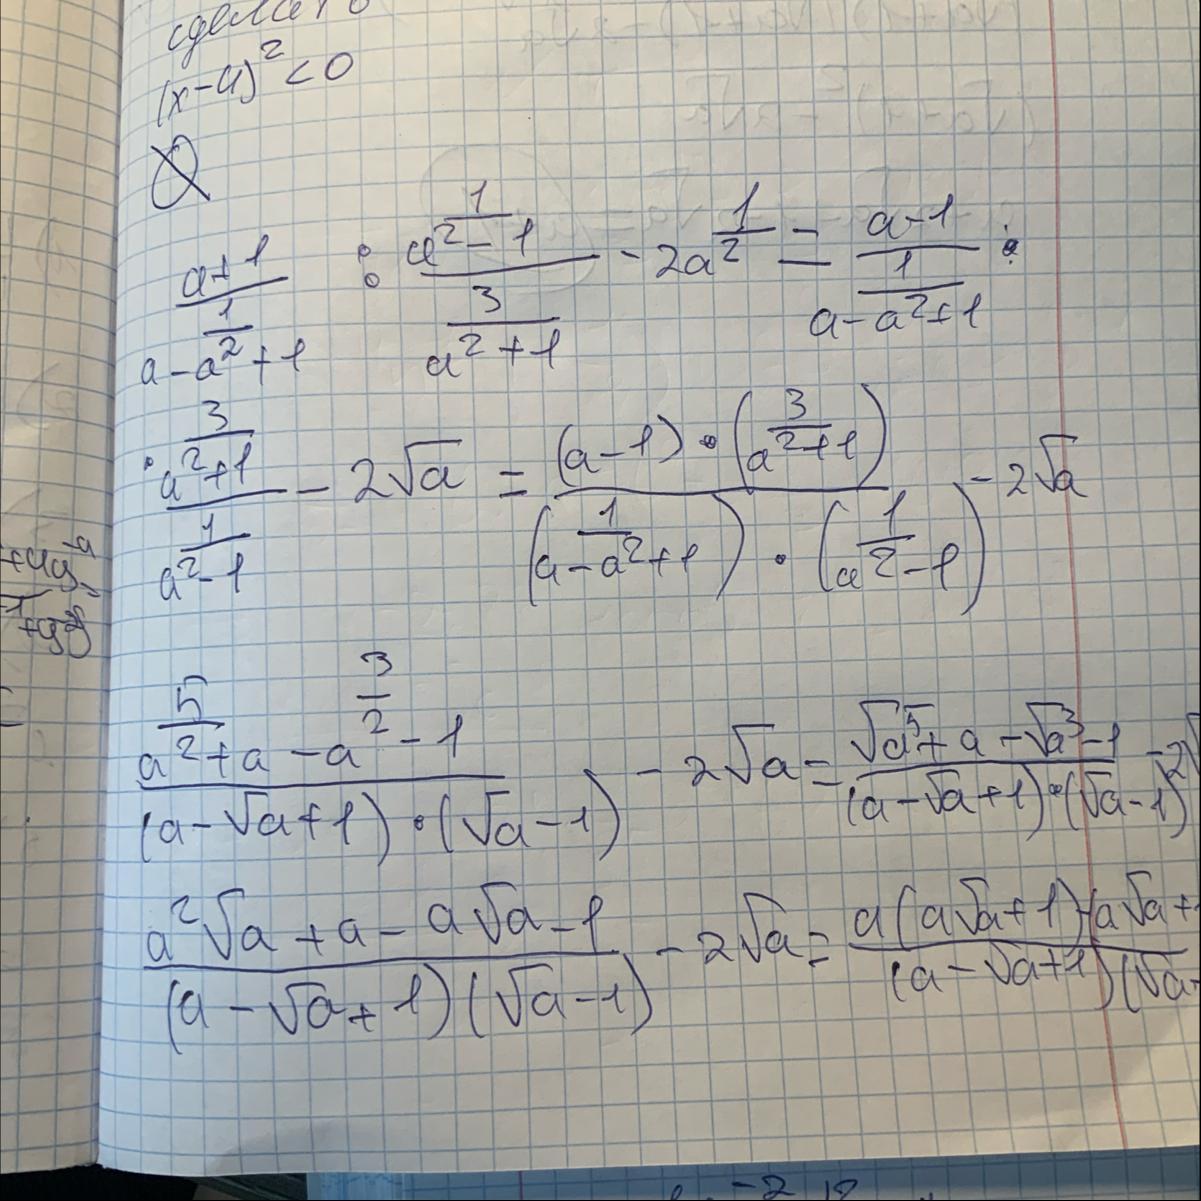 (x-4)² < 0
∅
(a+1)/(a-a^(1/2)+1) : (a^(1/2)-1)/(a^(3/2)+1) - 2a^(1/2) = (a-1)/(a-a^(1/2)+1) :
: (a^(3/2)+1)/(a^(1/2)-1) - 2√a = ((a-1)·(a^(3/2)+1))/((a-a^(1/2)+1)·(a^(1/2)-1)) - 2√a
(a^(5/2)+a-a^(3/2)-1)/((a-√a+1)·(√a-1)) - 2√a = (√a⁵+a-√a³-1)/((a-√a+1)·(√a-1)) - 2√
(a²√a+a-a√a-1)/((a-√a+1)(√a-1)) - 2√a = (a(a√a+1)-(a√a+1)/((a-√a+1)(√a-